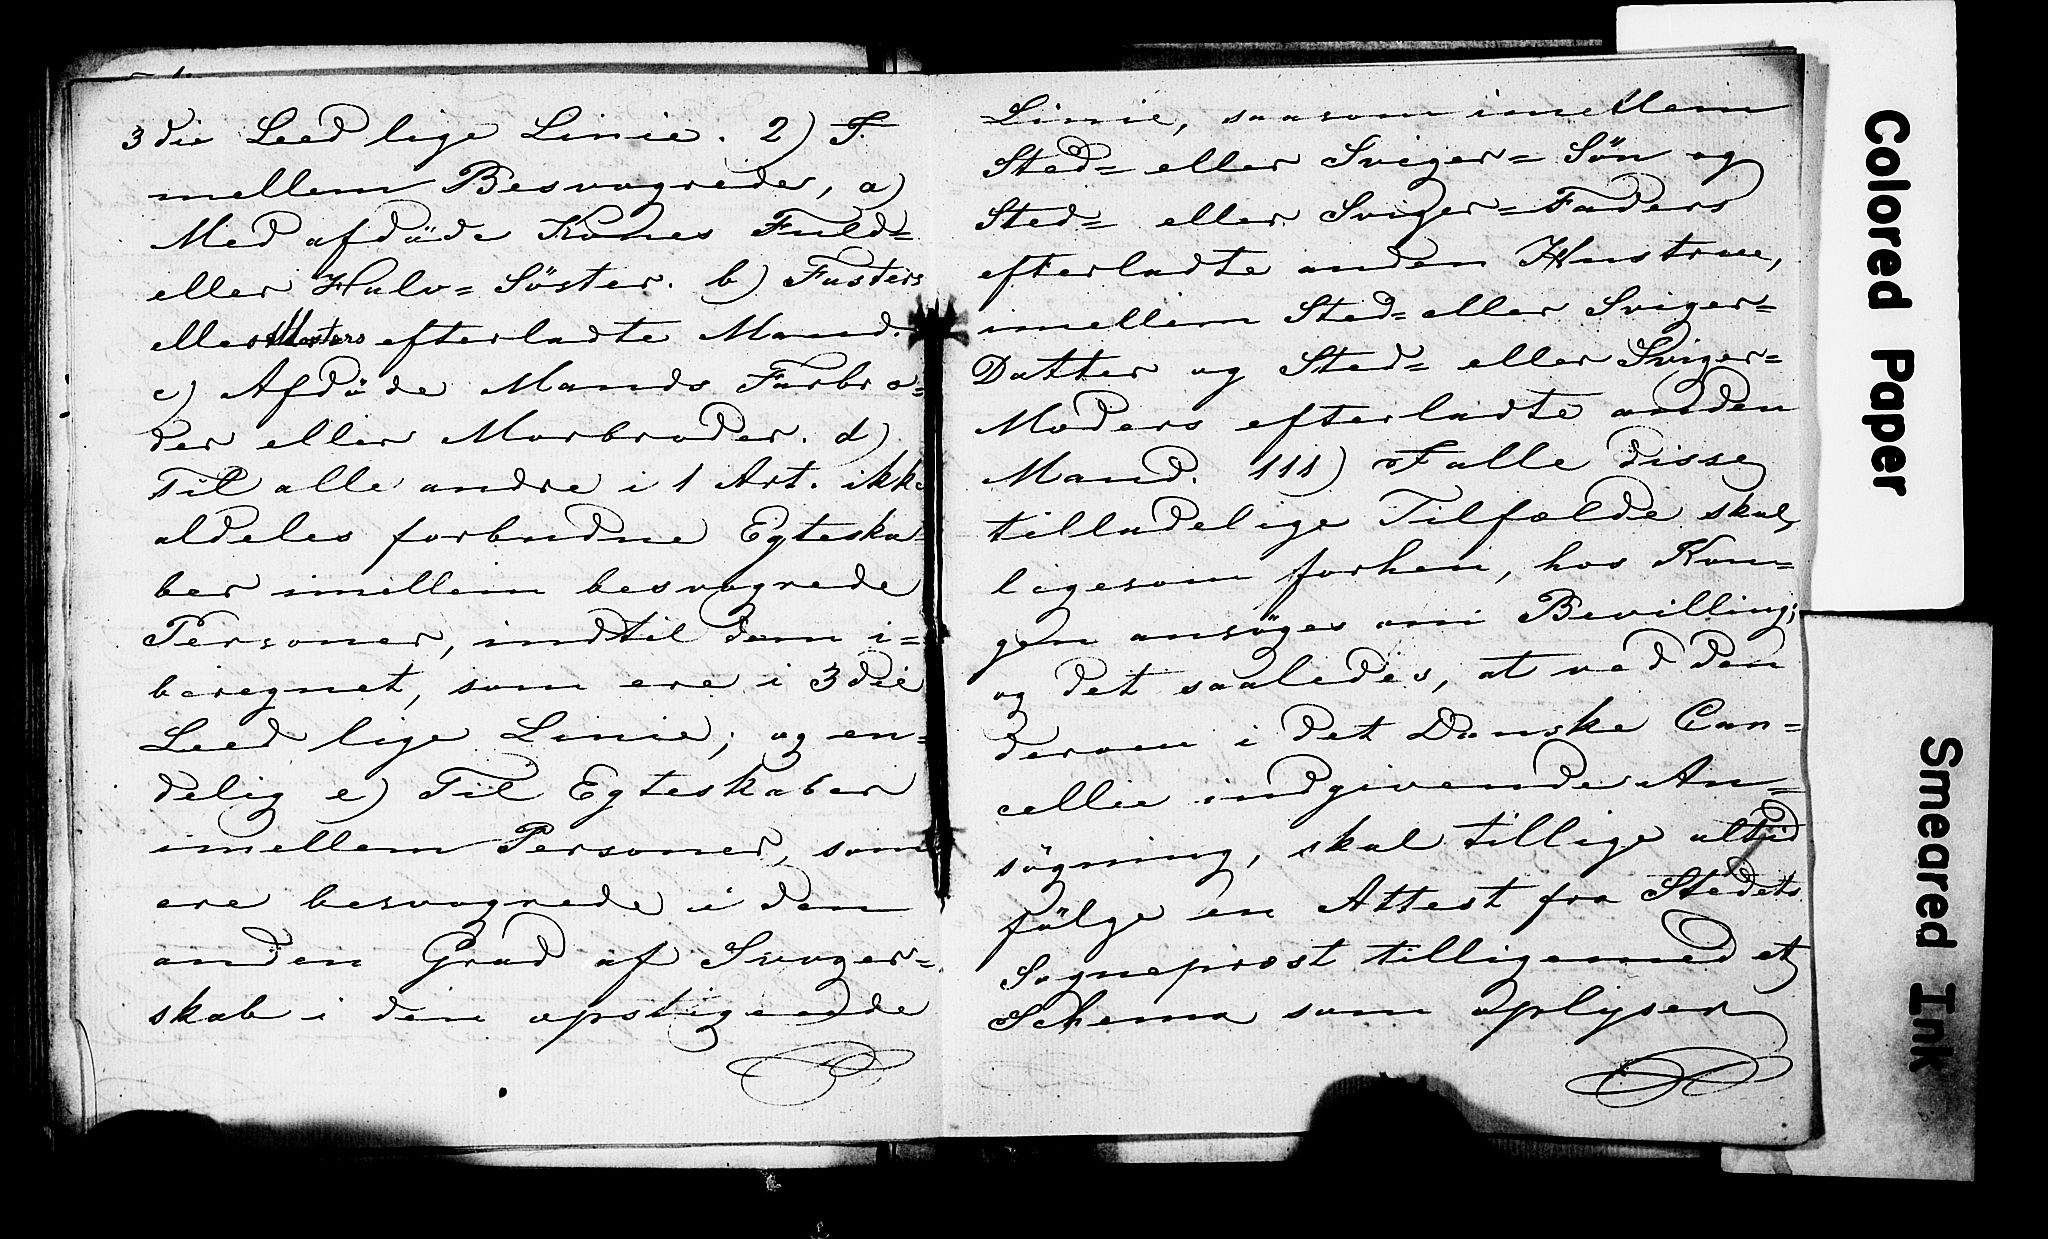 3die Leed lige Linie. 2) I
mellem Besvogrede, a)
Med afdöde Kones Fuld=
eller Halv=Söster. b) Fasters
eller Mosters efterladte Mand.
c) Afdöde Mands Farbro=
der eller Morbroder. d)
Til alle andre i 1 Art. ikke
aldeles forbudne Egteska=
ber imellem besvogrede
Personer, indtil dem i=
beregnet, som ere i 3die
Leed lige Linie; og en=
delig e) Til Egteskaber
imellem Personer, som
ere besvogrede i den
anden Grad af Svoger=
skab i den opstigende
Linie, saasom imellem
Sted= eller Sviger=Sön og
Sted= eller Sviger=Faders
efterladte anden Hustrue,
imellem Sted= eller Sviger=
Datter og Sted= eller Sviger=
Moders efterladte anden
Mand. 111) I alle disse
tilladelige Tilfælde skal,
ligesom forhen, hos Kon=
gen ansöges om Bevilling;
og det saaledes, at ved den
derom i det Danske Can=
cellie indgivende An=
sögning, skal tillige altid
fölge en Attest fra Stedets
Sogneprost tilligemed et
Schema som oplyser
Colored Paper
Smeared Ink